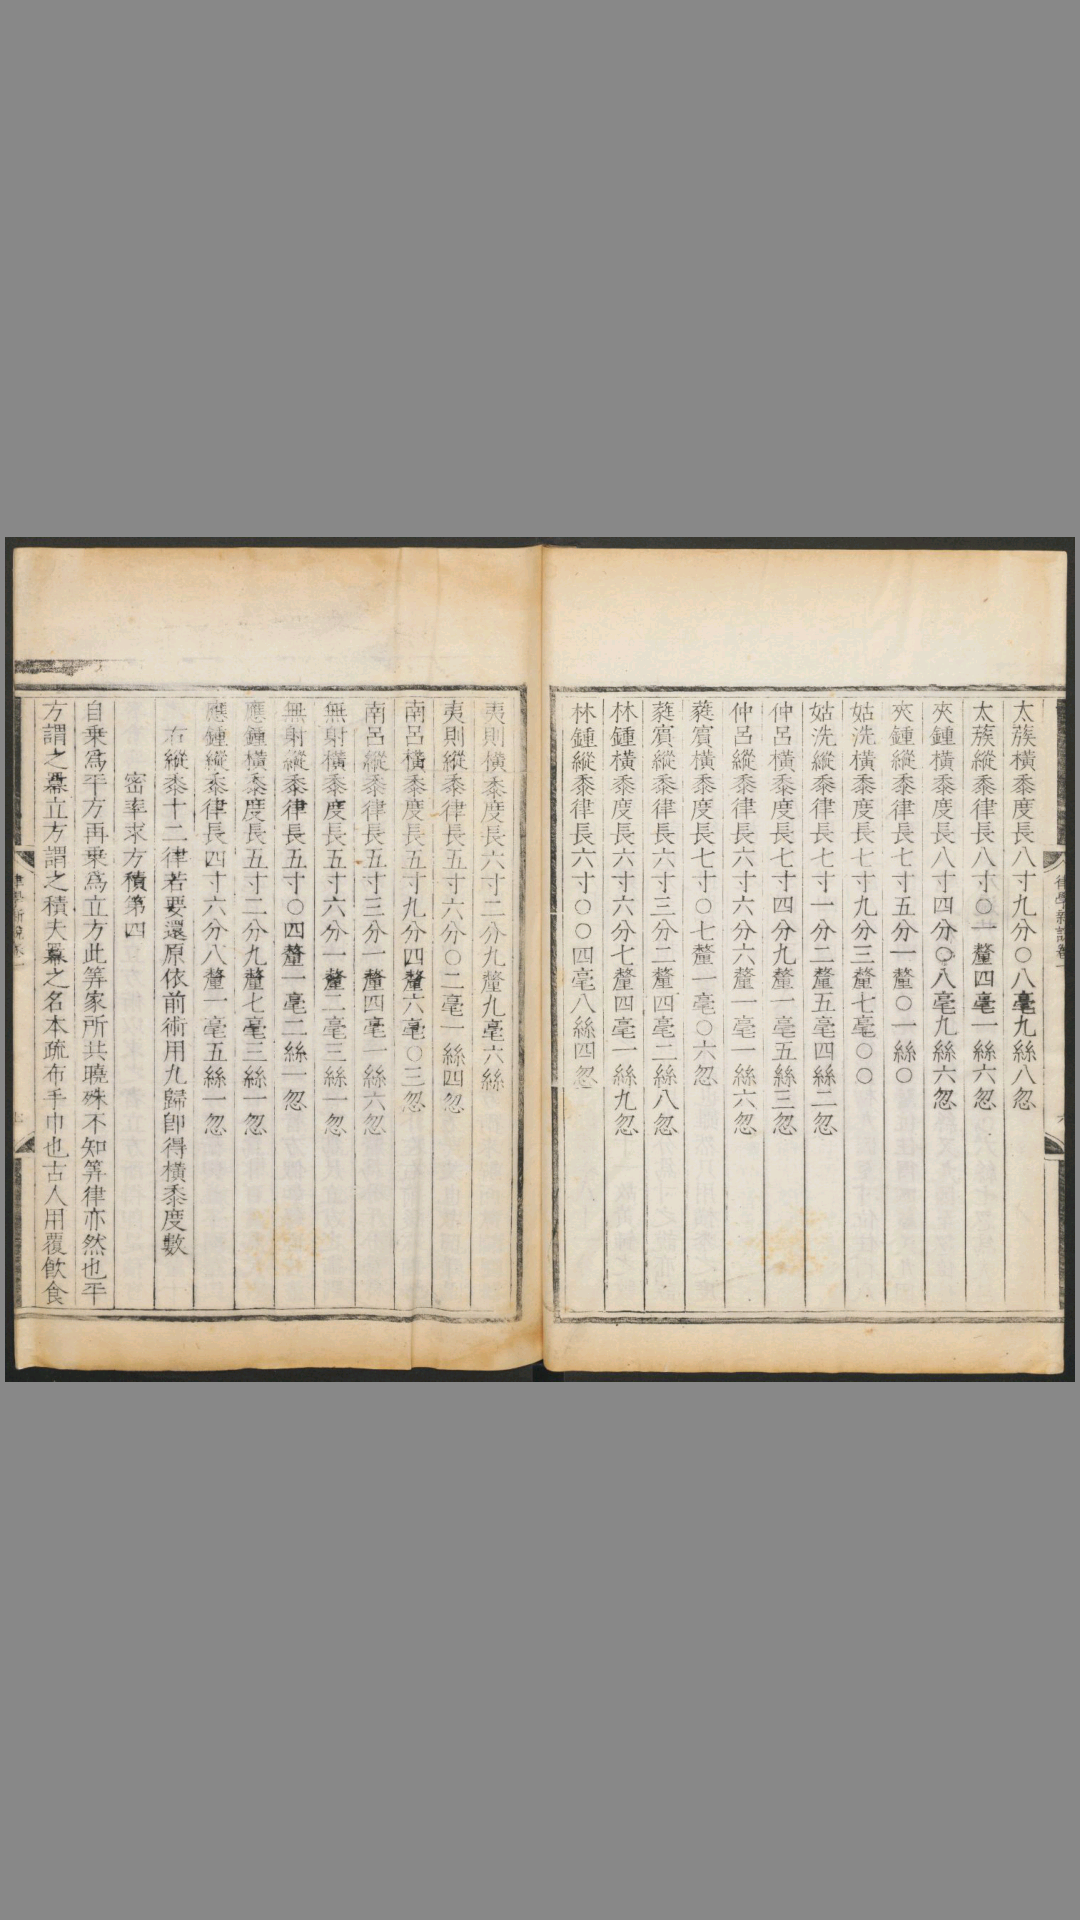 太蔟橫黍度長八寸九分〇八毫九絲八忽
太蔟縱黍律長八寸〇一釐四毫一絲六忽
夾鍾橫黍度長八寸四分〇八毫九絲六忽
夾鍾縱黍律長七寸五分一釐〇一絲〇
姑洗橫黍度長七寸九分三釐七毫〇〇
姑洗縱黍律長七寸一分二釐五毫四絲二忽
仲呂橫黍度長七寸四分九釐一毫五絲三忽
仲呂縱黍律長六寸六分六釐一毫一絲六忽
蕤賓橫黍度長七寸〇七釐一毫〇六忽
蕤賓縱黍律長六寸三分二釐四毫二絲八忽
林鍾橫黍度長六寸六分七釐四毫一絲九忽
林鍾縱黍律長六寸〇〇四毫八絲四忽
夷則橫黍度長六寸二分九釐九毫六絲
夷則縱黍律長五寸六分〇二毫一絲四忽
南呂橫黍度長五寸九分四釐六毫〇三忽
南呂縱黍律長五寸三分一釐四毫一絲六忽
無射橫黍度長五寸六分一釐二毫三絲一忽
無射縱黍律長五寸〇四釐一毫二絲一忽
應鍾橫黍度長五寸二分九釐七毫三絲一忽
應鍾縱黍律長四寸六分八釐一毫五絲一忽
右縱黍十二律若要還原依前術用九歸卽得橫黍度數
密率求方積第四
自乗爲平方再乗爲立方此筭家所共曉殊不知筭律亦然也平
方謂之冪立方謂之積夫冪之名本疏布手巾也古人用覆飮食